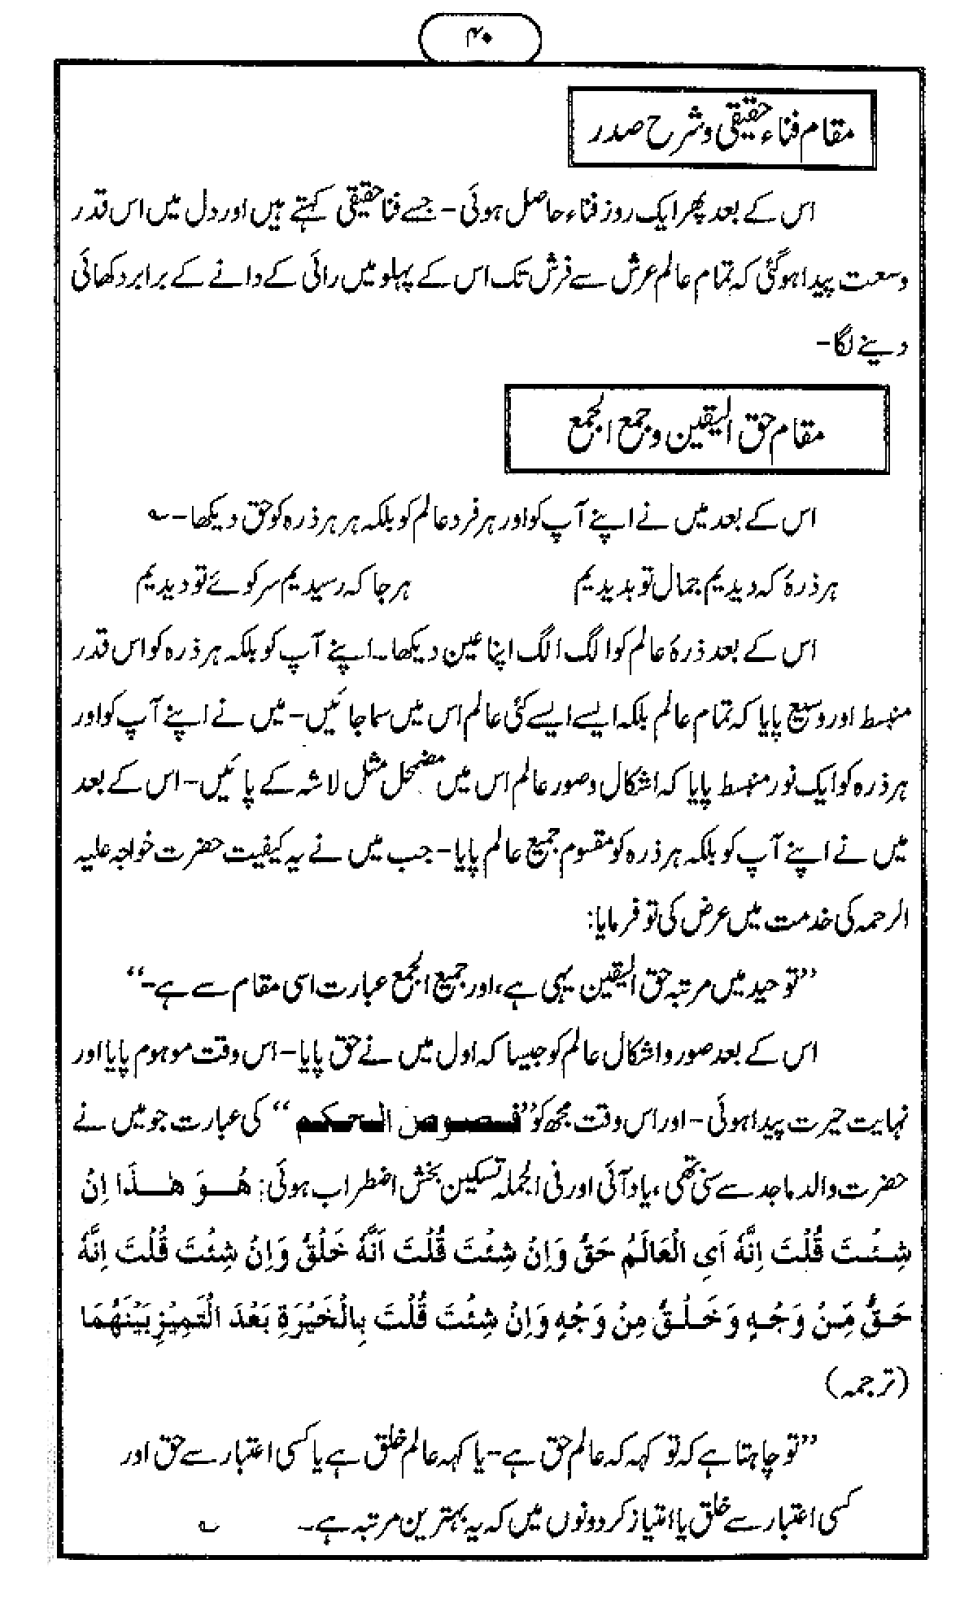 ۴۰
مقام فناء حقیقی و شرح صدر
اس کے بعد پھر ایک روز فناء حاصل ہوئی - جسے فنا حقیقی کہتے ہیں اور دل میں اس قدر
وسعت پیدا ہو گئی کہ تمام عالم عرش سے فرش تک اس کے پہلو میں رائی کے دانے کے برابر دکھائی
دینے لگا -
مقام حق الیقین و جمع الجمع
اس کے بعد میں نے اپنے آپ کو اور ہر فرد عالم کو بلکہ ہر ہر ذرہ کو حق دیکھا - ؎
ہر ذرۂ کہ دیدیم جمال تو بدیدیم ہر جا کہ رسیدیم سر کوئے تو دیدیم
اس کے بعد ذرۂ عالم کو الگ الگ اپنا عین دیکھا۔ اپنے آپ کو بلکہ ہر ذرہ کو اس قدر
منبسط اور وسیع پایا کہ تمام عالم بلکہ ایسے ایسے کئی عالم اس میں سما جائیں - میں نے اپنے آپ کو اور
ہر ذرہ کو ایک نور منبسط پایا کہ اشکال و صور عالم اس میں مضمحل مثل لاشہ کے پائیں - اس کے بعد
میں نے اپنے آپ کو بلکہ ہر ذرہ کو مقسوم جمیع عالم پایا - جب میں نے یہ کیفیت حضرت خواجہ علیہ
الرحمہ کی خدمت میں عرض کی تو فرمایا:
”توحید میں مرتبہ حق الیقین یہی ہے، اور جمیع الجمع عبارت اسی مقام سے ہے -“
اس کے بعد صور و اشکال عالم کو جیسا کہ اول میں نے حق پایا - اس وقت موہوم پایا اور
نہایت حیرت پیدا ہوئی - اور اس وقت مجھ کو ”فصوص الحکم“ کی عبارت جو میں نے
حضرت والد ماجد سے سنی تھی، یاد آئی اور فی الجملہ تسکین بخش اضطراب ہوئی: هُوَ هٰذَا اِنْ
شِئْتَ قُلْتَ اِنَّهٗ اَىِ الْعَالَمُ حَقٌّ وَاِنْ شِئْتَ قُلْتَ اَنَّهٗ خَلْقٌ وَاِنْ شِئْتَ قُلْتَ اِنَّهٗ
حَقٌّ مِّنْ وَجْهٍ وَخَلْقٌ مِنْ وَجْهٍ وَاِنْ شِئْتَ قُلْتَ بِالْخَيْرَةِ بَعْدَ الْتَمِيْزِ بَيْنَهُمَا
(ترجمہ)
”تو چاہتا ہے کہ تو کہہ کہ عالم حق ہے - یا کہہ عالم خلق ہے یا کسی اعتبار سے حق اور
کسی اعتبار سے خلق یا امتیاز کر دونوں میں کہ یہ بہترین مرتبہ ہے - ؎